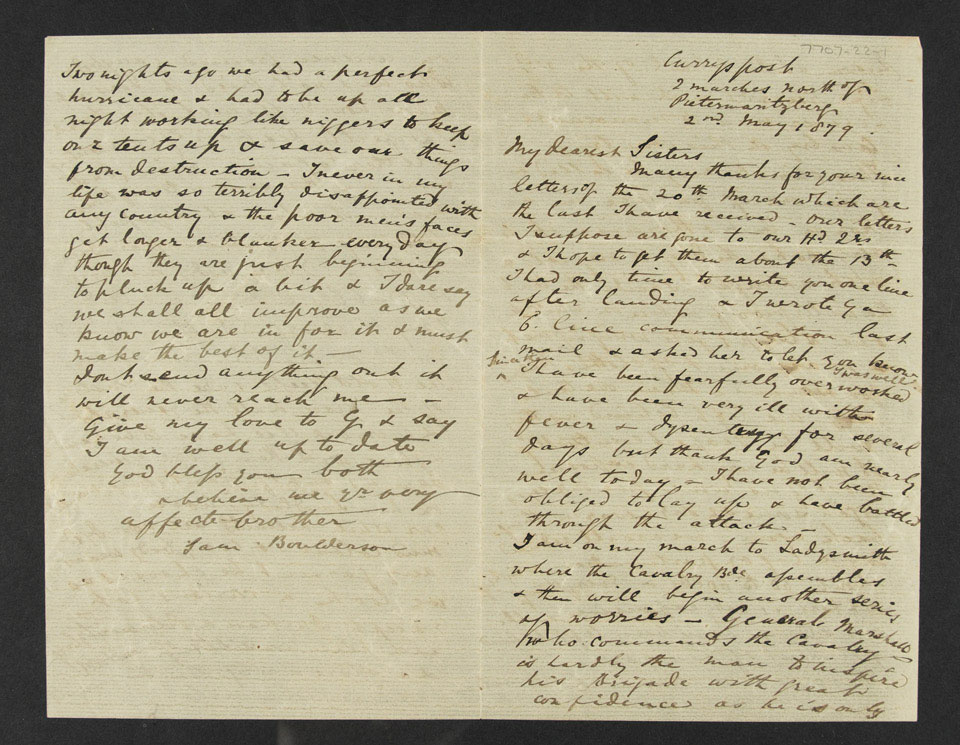 7707-22-1
Currys post
2 marches north of
Pietermaritzberg
2nd May 1879.
My dearest Sisters
Many thanks for your nice
letters of the 20th March which are
the last I have received – our letters
I suppose are gone to our Hd Qrs
& I hope to get them about the 13th
I had only time to write you one line
after landing & I wrote Ga
6. line communication last
mail & asked her to let you know
I was well
Since then
I have been fearfully overworked
& have been very ill with
fever & dysentery for several
days but thank God am nearly
well today – I have not been
obliged to lay up & have battled
through the attack –
I am on my march to Ladysmith
where the Cavalry Bde assembles
& then will begin another series
of worries – General Marshall
who commands the Cavalry
is hardly the man to inspire
his Brigade with great
confidence as he is only
Two nights ago we had a perfect
hurricane & had to be up all
night working like niggers to keep
our tents up & save our things
from destruction – I never in my
life was so terribly disappointed with
any country & the poor men's faces
get longer & blanker every day
though they are just beginning
to pluck up a bit & I dare say
we shall all improve as we
know we are in for it & must
make the best of it –
Dont send anything out it
will never reach me –
Give my love to G & say
I am well up to date
God bless you both
& believe me yr very
affecte brother
Sam Boulderson